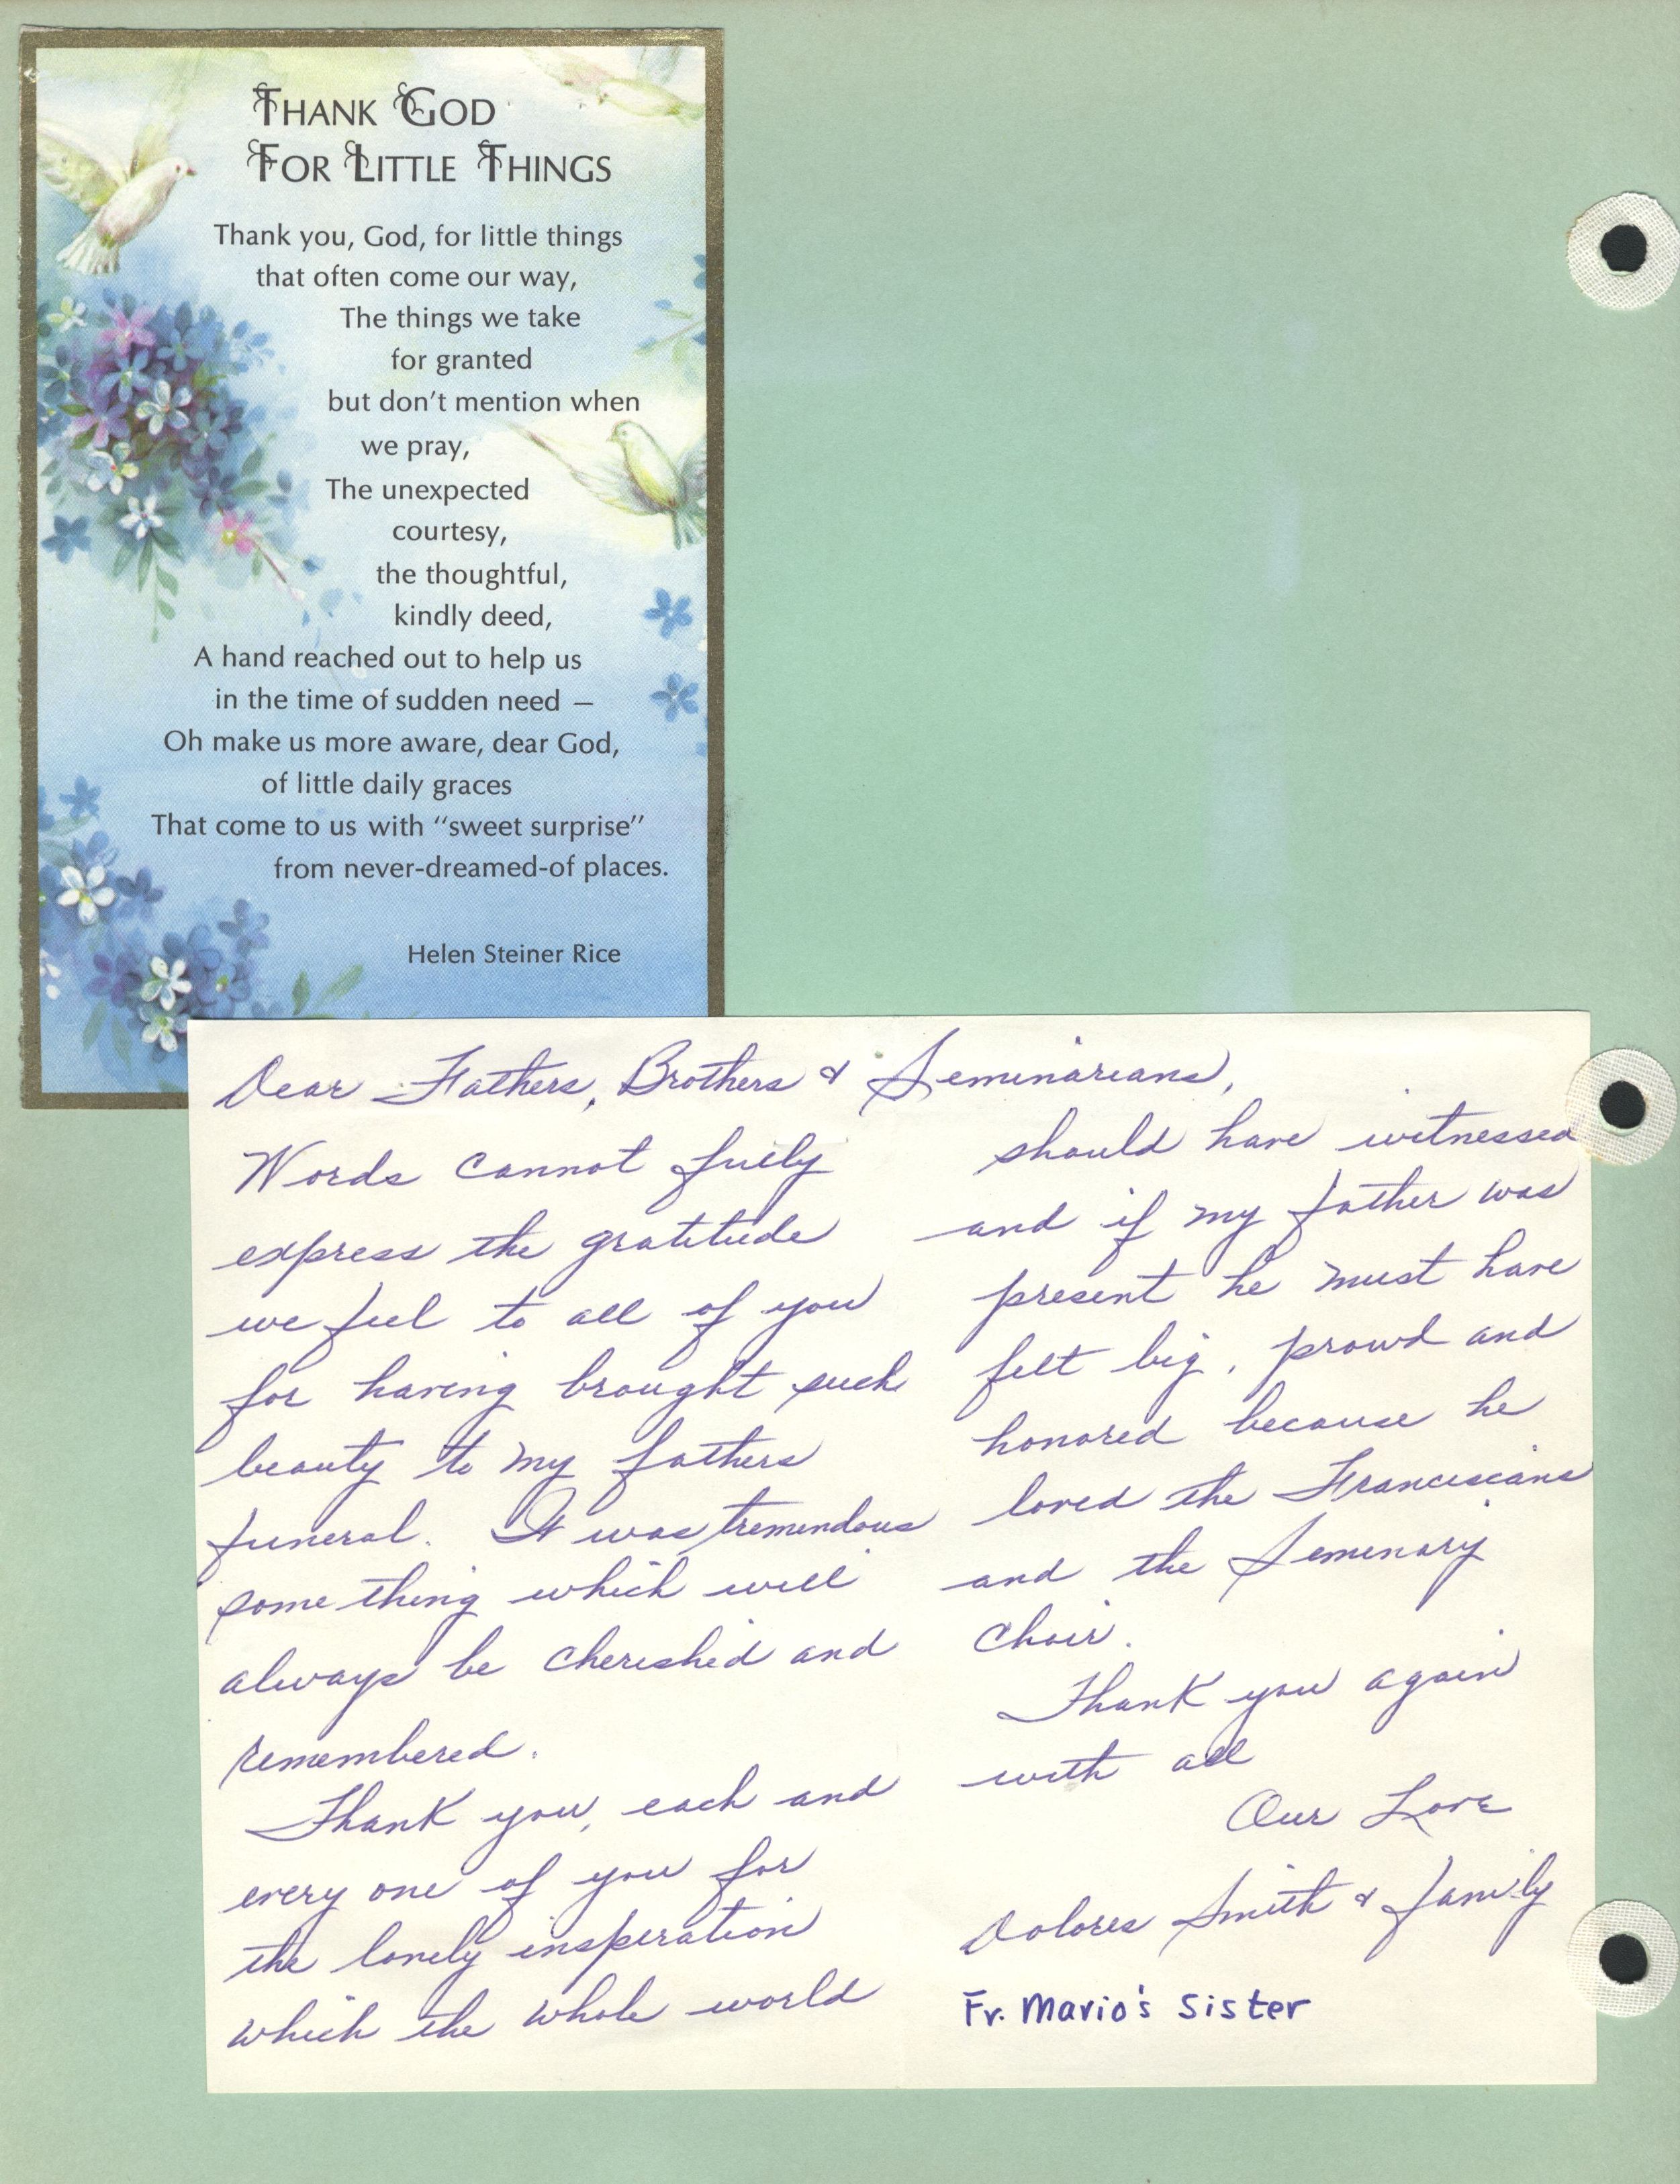 THANK GOD
FOR LITTLE THINGS
Thank you, God, for little things
that often come our way,
The things we take
for granted
but don't mention when
we pray,
The unexpected
courtesy,
the thoughtful,
kindly deed,
A hand reached out to help us
in the time of sudden need —
Oh make us more aware, dear God,
of little daily graces
That come to us with "sweet surprise"
from never-dreamed-of places.
Helen Steiner Rice
Dear Fathers, Brothers & Seminarians,
Words cannot fully
express the gratitude
we feel to all of you
for having brought such
beauty to my fathers
funeral. It was tremendous
some thing which will
always be cherished and
remembered.
Thank you, each and
every one of you for
the lovely inspiration
which the whole world
should have witnessed
and if my father was
present he must have
felt big, proud and
honored because he
loved the Franciscans
and the Seminary
Choir.
Thank you again
with all
Our Love
Dolores Smith & family
Fr. Mario's Sister